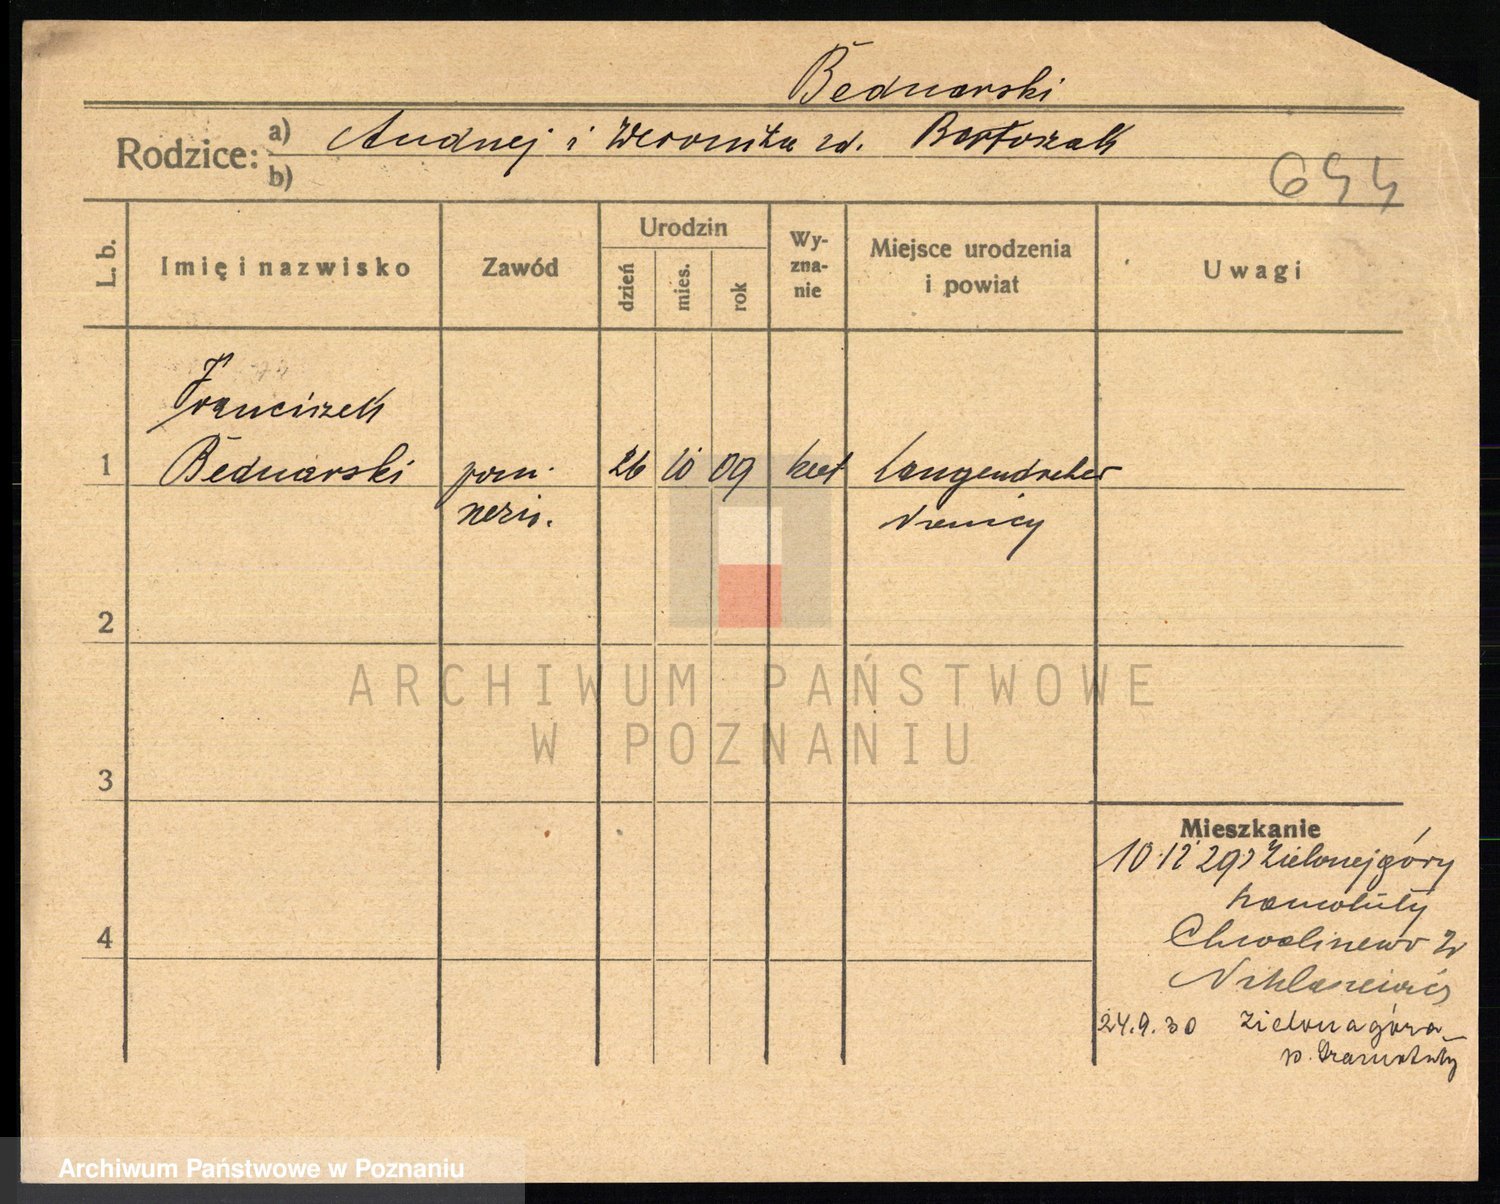 Bednarski
Rodzice: a) Andrzej i Weronika zd. Bartoszak
b)
644
L. b.
Imię i nazwisko
Zawód
Urodzin
dzień
mies.
rok
Wy-
zna-
nie
Miejsce urodzenia
i powiat
Uwagi
Franciszek
1 Bednarski pom. 26 10 09 kat Langendreher
Niemcy
2
3
4
ARCHIWUM PAŃSTWOWE
W POZNANIU
Mieszkanie
10.12 29 z Zielonejgóry
Szamotuły
Chwaliszewo
24.9.30 Zielonagóra
p. Szamotuły
Archiwum Państwowe w Poznaniu